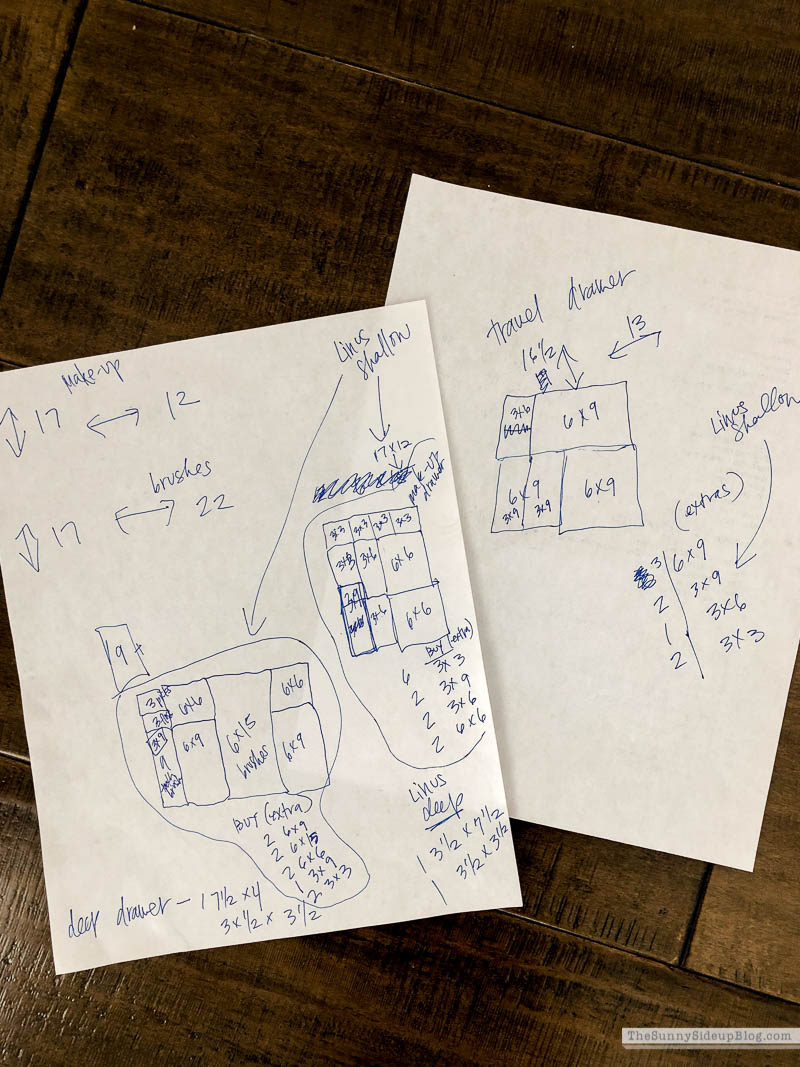 make-up
17 12
brushes
17 22
Linus
Shallow
17x12
make-up
drawer
3x3 3x3 3x3 3x3
3x3 3x6 6x6
3x9
3x6 6x6
BUY (extra)
6 3x3
2 3x9
2 3x6
2 6x6
9+
6x6 6x6
3x9 6x9 6x15 6x9
brushes
9
BUY (extra)
2 6x9
2 6x15
2 6x6
1 3x9
2 3x3
Linus
deep
1 3 1/2 x 7 1/2
1 3 1/2 x 3 1/2
deep drawer - 17 1/2 x 4
3 x 1/2 x 3 1/2
travel drawer
16 1/2 13
3x6 6x9
6x9 6x9
3x9 3x9
Linus
Shallow
(extras)
3 6x9
2 3x9
1 3x6
2 3x3
TheSunnySideupBlog.com